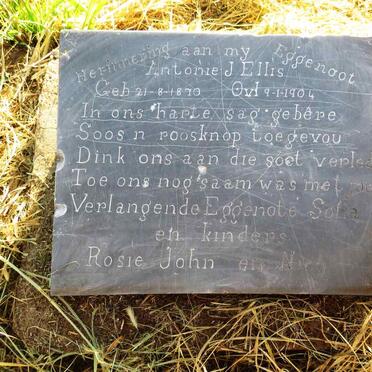 Herinnering aan my Eggenoot
Antonie J Ellis
Geb 21-8-1870 Ovl 9-1-1904
In ons harte sag gebêre
Soos n roosknop toegevou
Dink ons aan die soet
Toe ons nog saam was met
Verlangende Eggenote Sofia
en kinders
Rosie John en